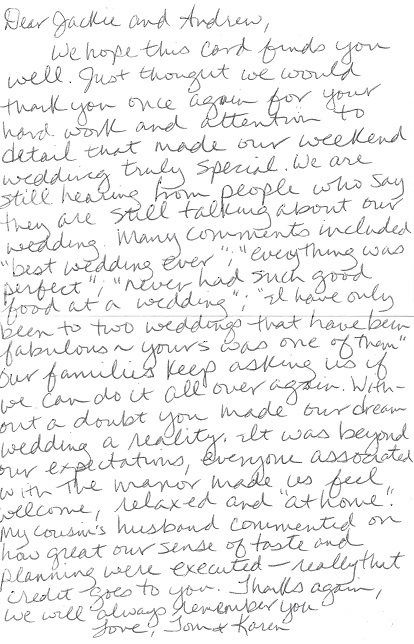 Dear Jackie and Andrew,
We hope this card finds you
well. Just thought we would
thank you once again for your
hard work and attention to
detail that made our weekend
wedding truly special. We are
still hearing from people who say
they are still talking about our
wedding. Many comments included
"best wedding ever"; "everything was
perfect"; "never had such good
food at a wedding"; "I have only
been to two weddings that have been
fabulous ~ yours was one of them"
Our families keep asking us if
we can do it all over again. With-
out a doubt you made our dream
wedding a reality. It was beyond
our expectations, everyone associated
with the manor made us feel
welcome, relaxed and "at home".
My cousin's husband commented on
how great our sense of taste and
planning were executed – really that
credit goes to you. Thanks again,
we will always remember you
Love, Tom & Karen